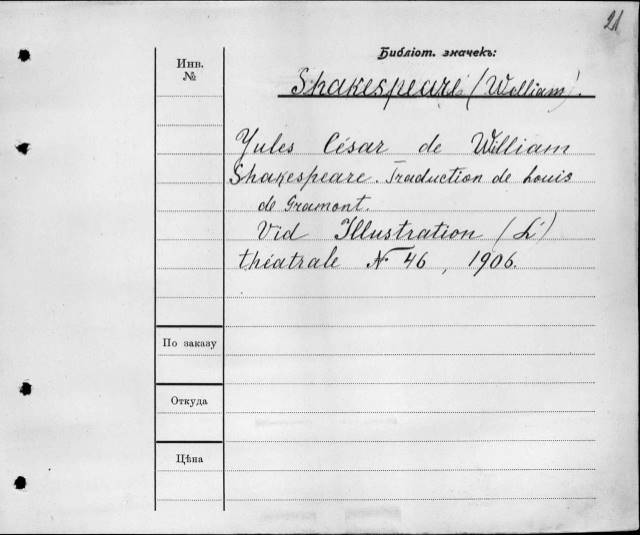 21
Библіот. значекъ:
Инв.
№
Shakespeare (William).
Yules César de William
Shakespeare. Traduction de Louis
de Gramont.
Vid Illustration (L')
théatrale № 46, 1906.
По заказу
Откуда
Цѣна